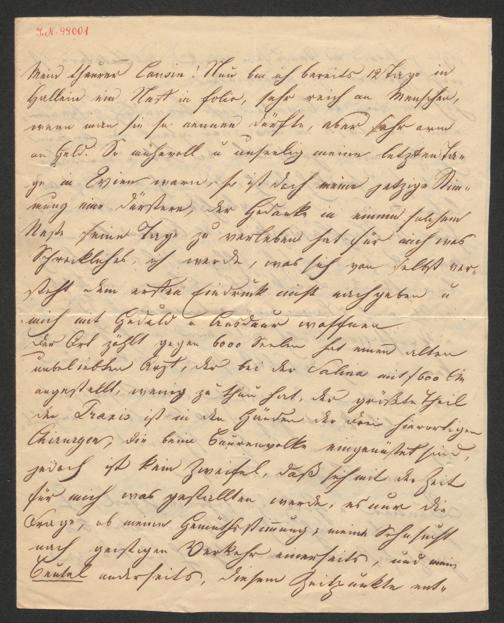 J.N. 99001
Mein theurer Cousin! Nun bin ich bereits 12 Tage in
Hallein ein Nest in folio, sehr reich an Menschen,
wenn man sie so nennen dürfte, aber sehr arm
an Geld. So mühevoll u unseelig meine letzten Ta-
ge in Wien waren, so ist doch meine jetzige Stim-
mung eine düstere, der Gedanke in einem solchen
Neste seine Tage zu verleben hat für mich was
Schreckliches, ich werde, was sich von selbst ver-
steht dem ersten Eindruck nicht nachgeben u
mich mit Geduld u Ausdauer waffnen
Der Ort zählt gegen 6000 Seelen hat einen alten
unbeliebten Arzt, der bei der Saline mit 600 fl
angestellt, wenig zu thun hat, der größte Theil
der Praxis ist in den Händen der drei hierortigen
Chirurgen, die beim Bauernvolke eingenistet sind,
jedoch ist kein Zweifel, daß sich mit der Zeit
für mich was gestalten werde, es nur die
Frage, ob meine Gemüthsstimmung, meine Sehnsucht
nach geistigen Verkehr einerseits, und mein
Beutel anderseits, diesem Zeitpunkte ent-